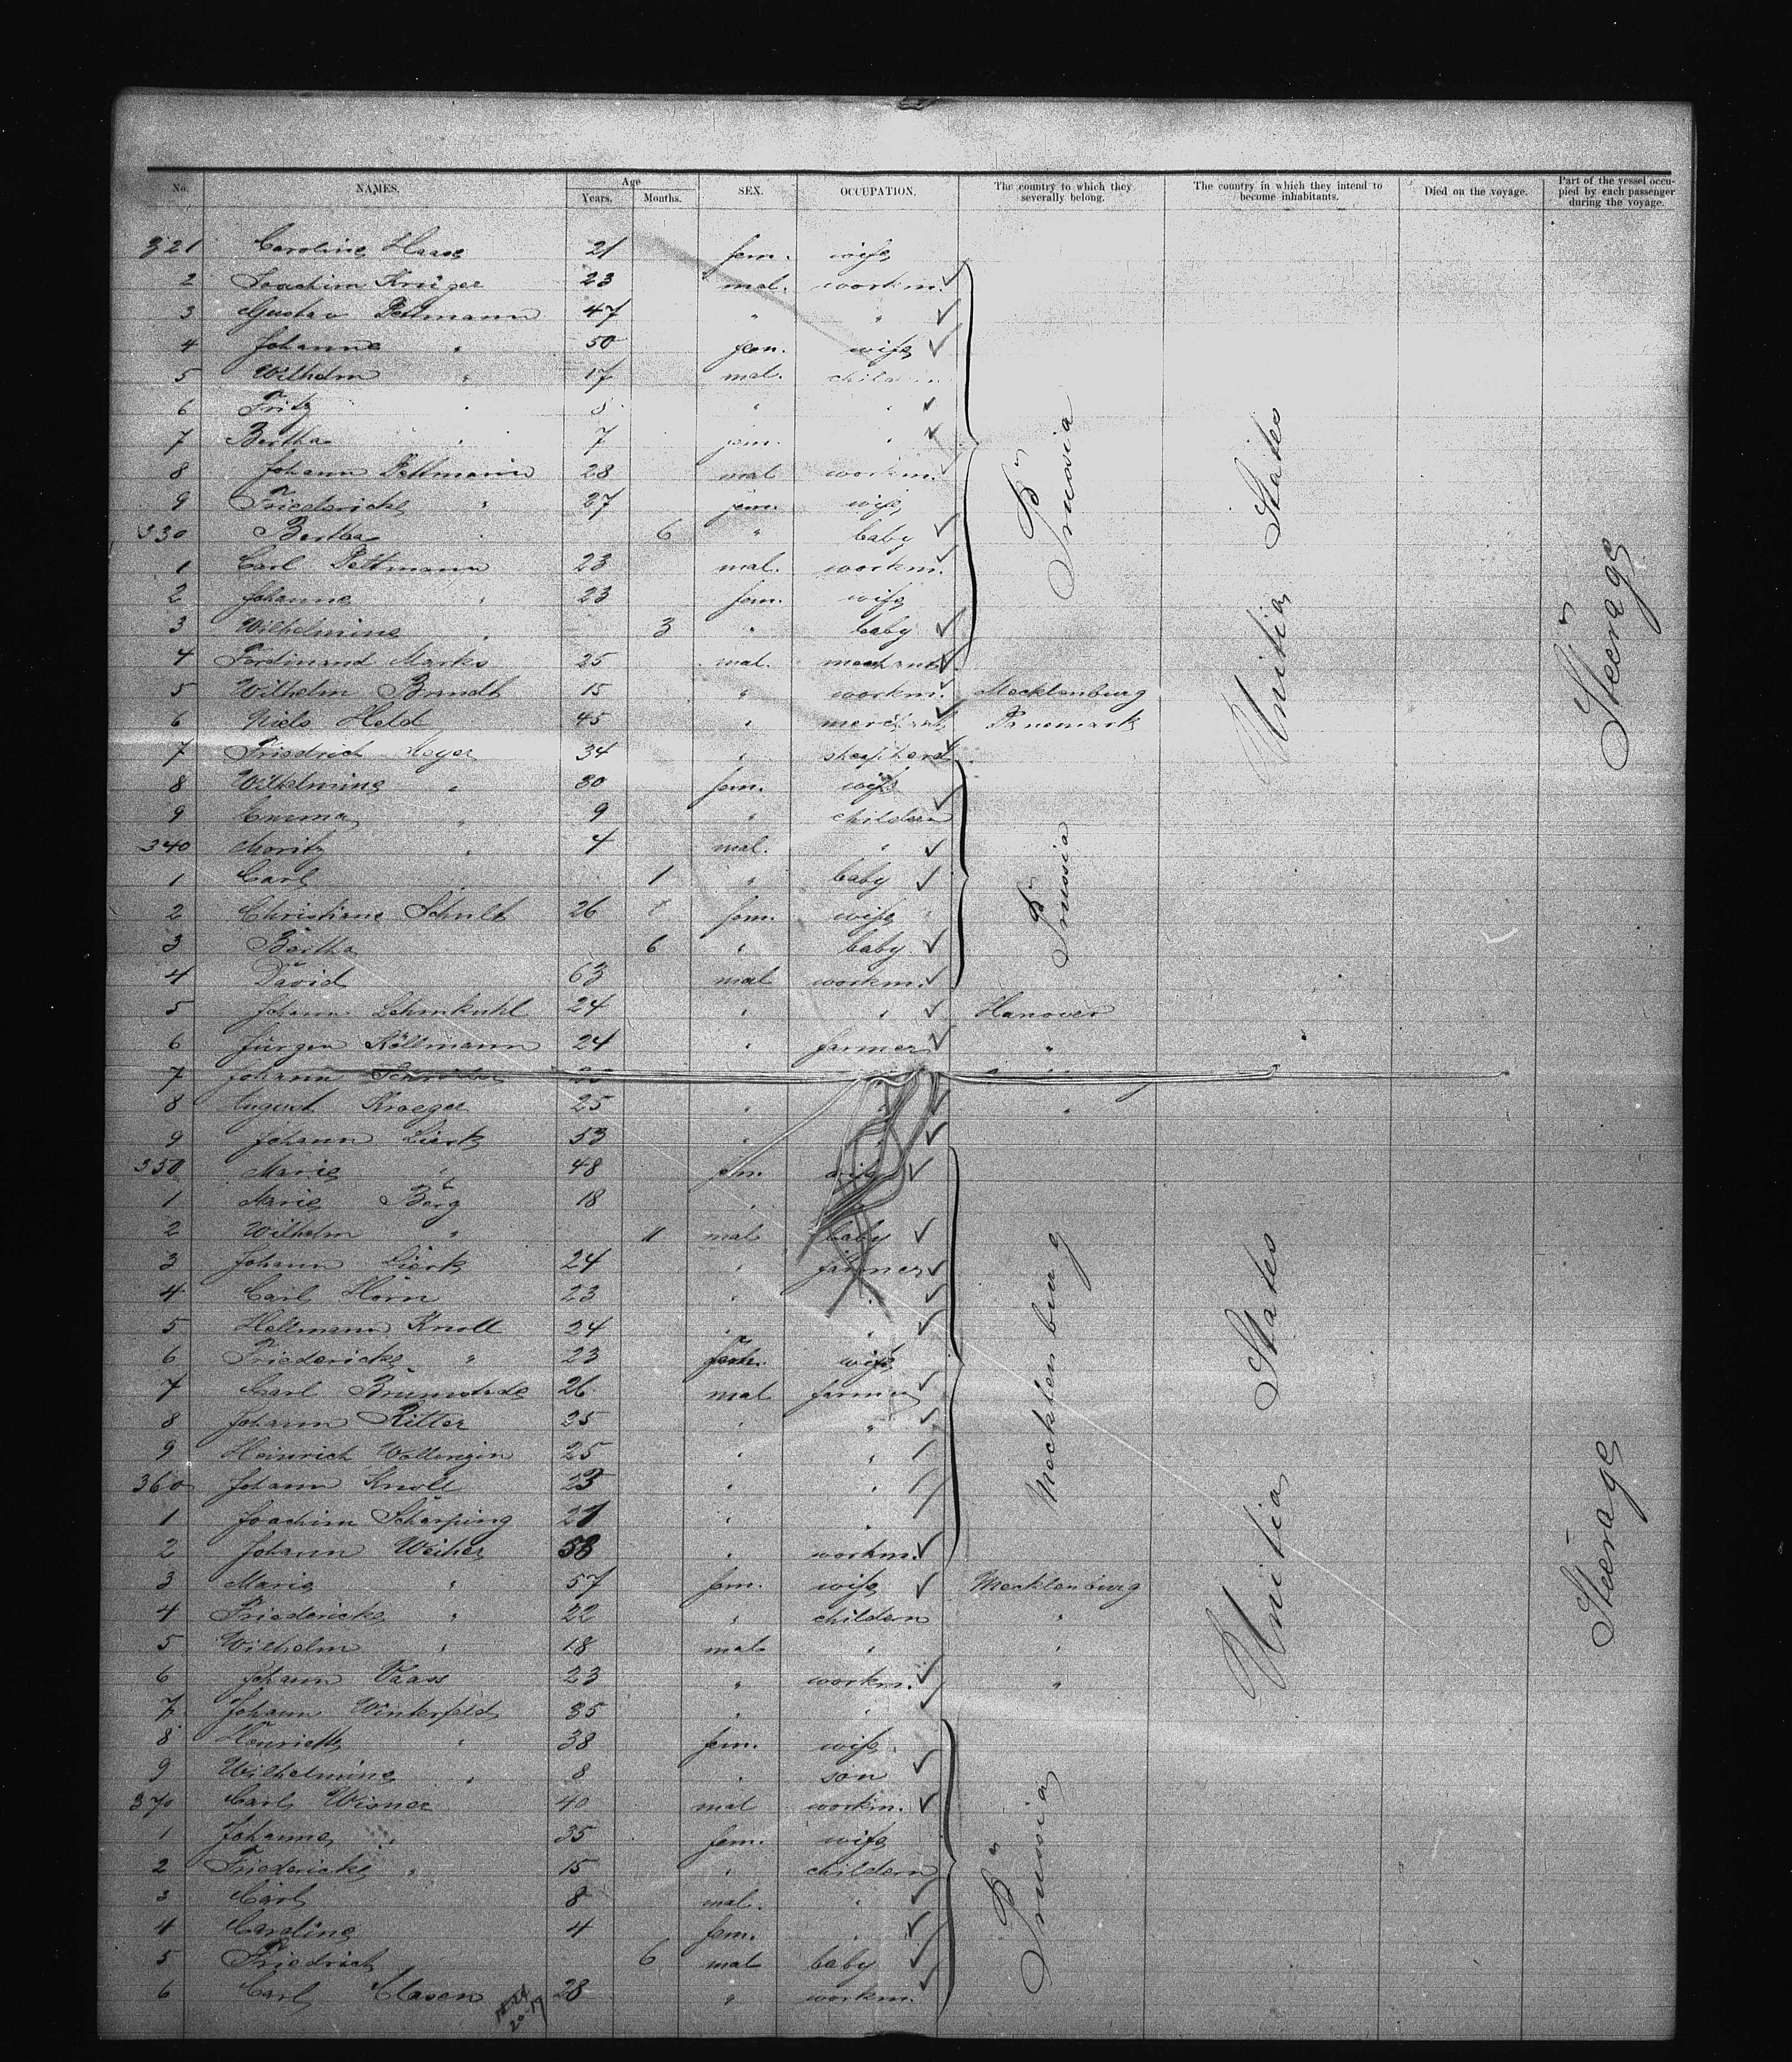 No. NAMES. Age Years. Months. SEX. OCCUPATION. The country to which they severally belong. The country in which they intend to become inhabitants. Died on the voyage. Part of the vessel occupied by each passenger during the voyage.
321 Caroline Haase 21 fem. wife
2 Joachim Krüger 23 mal. workm.
3 Gustav Dettmann 47 " "
4 Johanne " 50 fem. wife
5 Wilhelm " 17 mal.
6 Fritz " "
7 Bertha " 7 fem. "
8 Johann Dettmann 28 mal workm.
9 Friedericke " 27 fem. wife
330 Bertha " 6 " baby
1 Carl Dettmann 23 mal. workm.
2 Johanne " 23 fem. wife
3 Wilhelmine " 3 " baby
4 Ferdinand Marks 25 mal.
Prussia
5 Wilhelm Brandt 15 " workm. Mecklenburg
6 Niels Held 45 " merchant Danemark
7 Friedrich Meyer 34 " sheapherd
8 Wilhelmine " 30 fem. wife
9 Emma " 9 " childern
340 Moritz " 4 mal. "
1 Carl 1 " baby
2 Christiane Schult 26 fem. wife
3 Bertha 6 " baby
4 David 63 mal workm.
Prussia
5 Johann Lehmkuhl 24 " " Hanover
6 Jürgen Köllmann 24 " farmer "
7 Johann
8 August Kroeger 25 " " "
9 Johann Lierk 53 "
350 Marie " 48 fem. wife
1 Marie Berg 18 "
2 Wilhelm " 11 mal baby
3 Johann Lierk 24 " farmer
4 Carl Horn 23 " "
5 Hellmann Knoll 24 " "
6 Friedericke " 23 fem. wife
7 Carl 26 mal farmer
8 Johann Ritter 25 " "
9 Heinrich 25 " "
360 Johann Knoll 23 " "
1 Joachim Scherping 21 " "
2 Johann Weiher 58 " workm.
Mecklenburg
3 Marie " 57 fem. wife Mecklenburg
4 Friedericke " 22 " childern "
5 Wilhelm " 18 mal " "
6 Johann Vaass 23 " workm. "
7 Johann Winterfeld 35 " "
8 Henriette " 38 fem. wife
9 Wilhelmine " 8 " son
370 Carl Wisner 40 mal workm.
1 Johanne " 35 fem. wife
2 Friedericke " 15 " childern
3 Carl 8 mal. "
4 Caroline 4 fem. "
5 Friedrich 6 mal baby
6 Carl Clasen 28 " workm.
Prussia
Unitia States
Unitia States
Steerage
Steerage